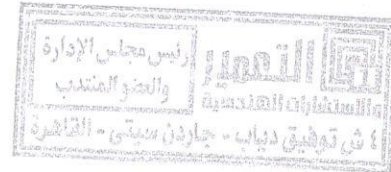 التعمير
والاستشارات الهندسية
رئيس مجلس الإدارة
والعضو المنتدب
٤ ش توفيق دياب - جاردن سيتى - القاهرة